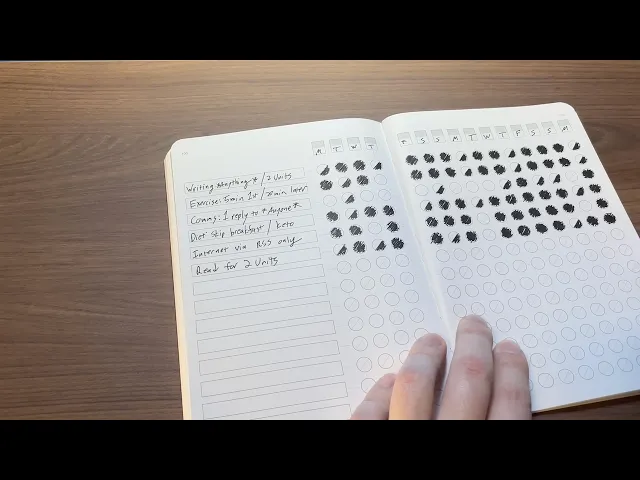 M T W T F S S M T W T F S S M
Writing anything* / 2 Units
Exercise: 5 min 1st / 20 min later
Comms: 1 reply to *Anyone*
Diet: Skip breakfast / Keto
Internet via RSS only
Read for 2 Units